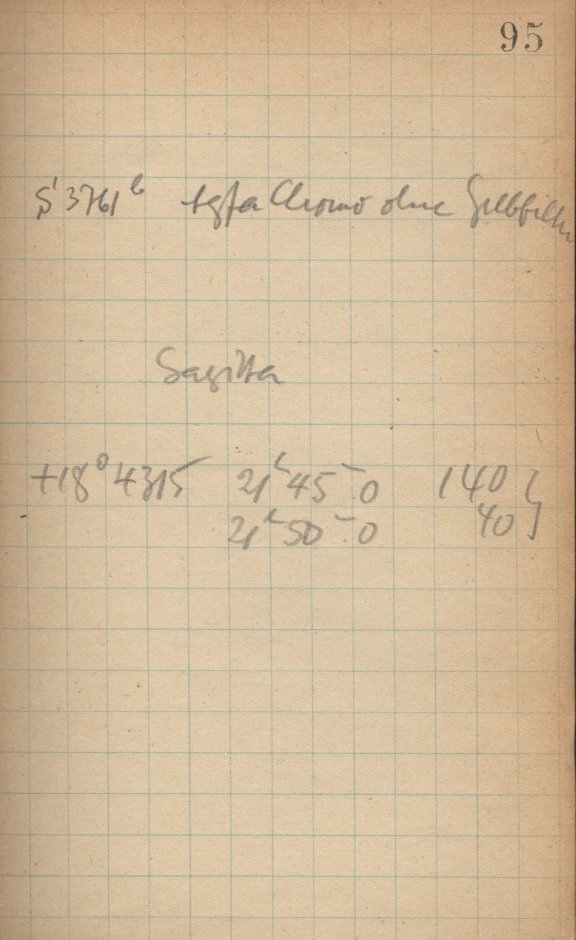 95
S 3761 b Agfa Chromo ohne Gelbfilter
Sagitta
+18° 4315 21h 45m 0 140
21h 50m 0 40